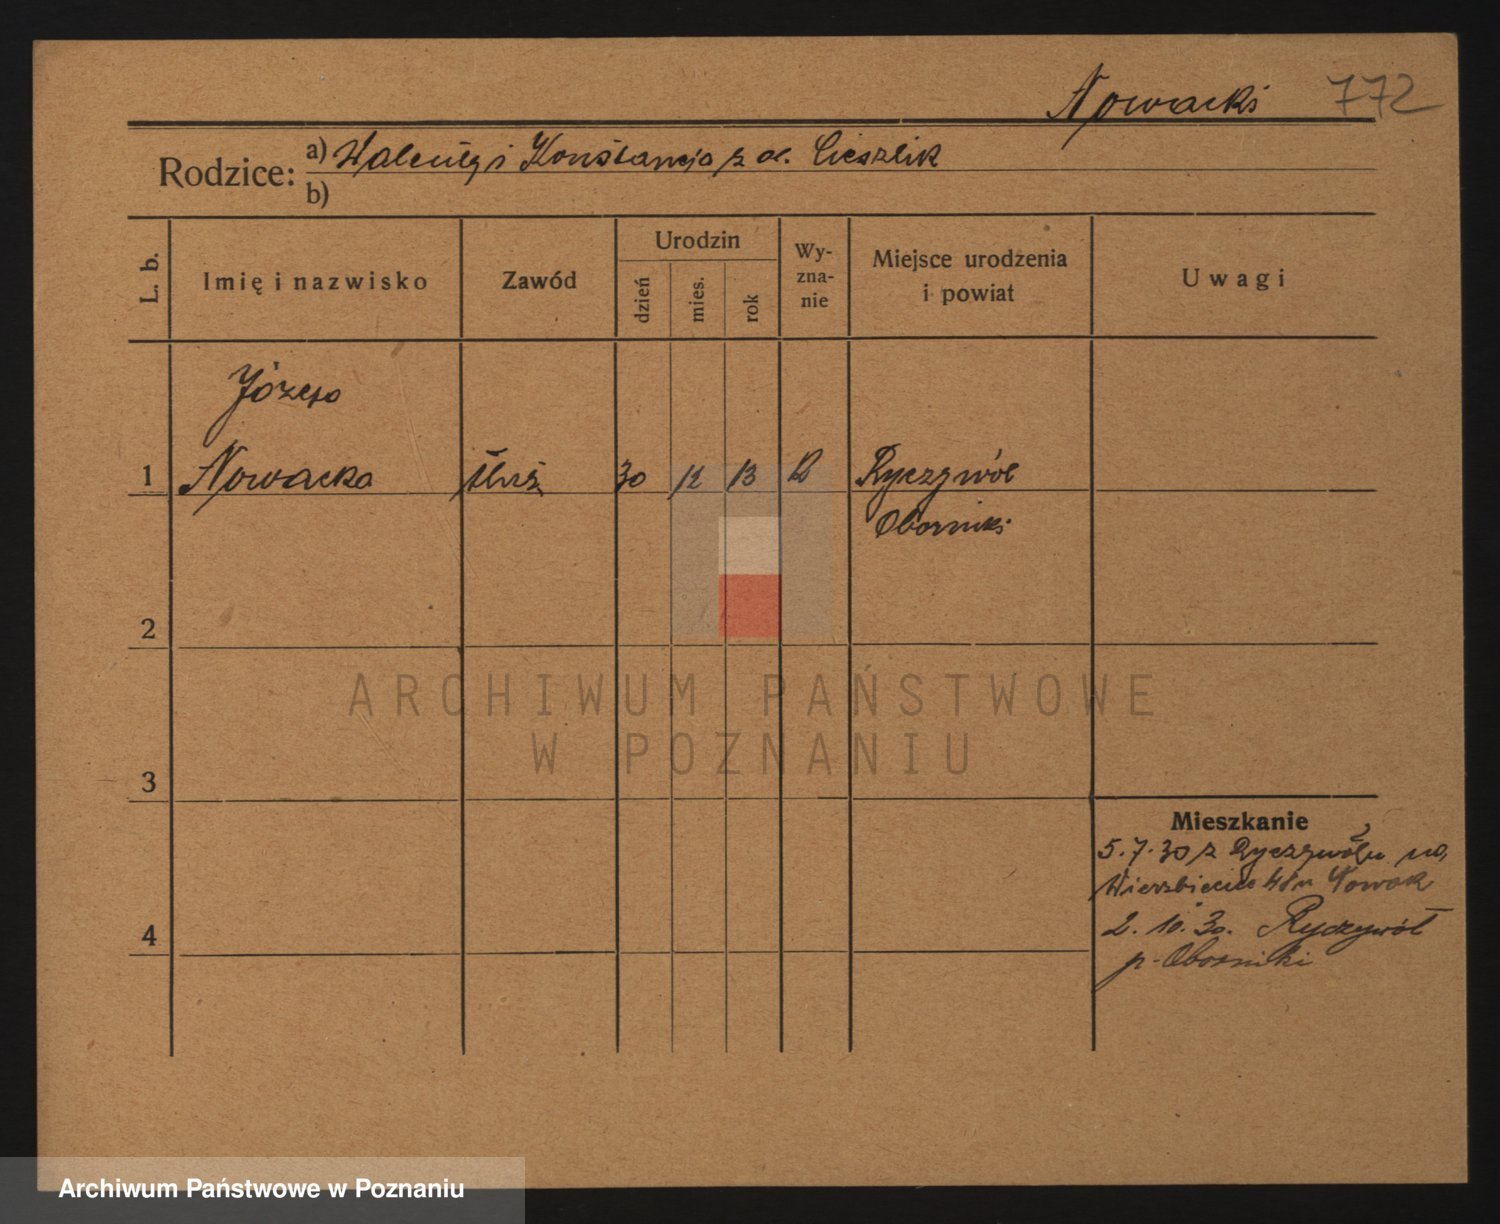 Nowacki 772
Rodzice: a) Walenty i Konstancja z d. Cieszlik
b)
L. b.
Imię i nazwisko
Zawód
Urodzin
dzień
mies.
rok
Wy-
zna-
nie
Miejsce urodzenia
i powiat
Uwagi
Józefa
1 Nowacka służ. 30 12 13 Ryczywół
Oborniki
2
3
4
Mieszkanie
5.7.30 z Ryczywołu na
Wierzbięcice Nowak
2.10.30. Ryczywół
p. Oborniki
ARCHIWUM PAŃSTWOWE
W POZNANIU
Archiwum Państwowe w Poznaniu